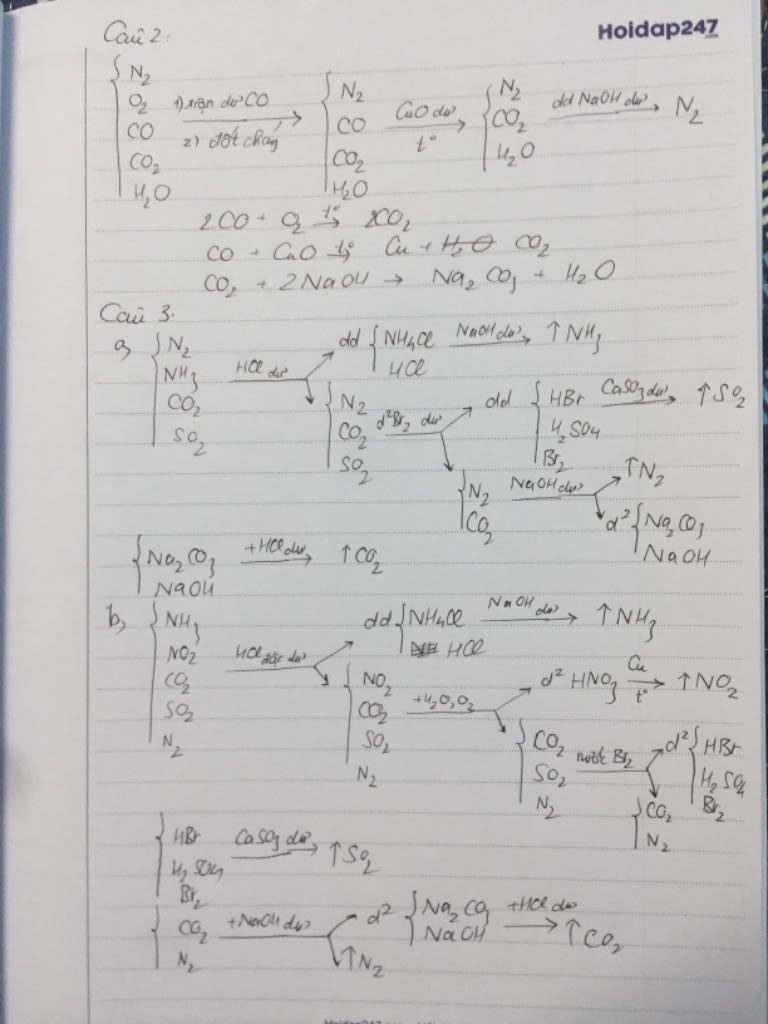 Hoidap247
.com
Câu 2:
{ N₂ O₂ CO CO₂ H₂O 1) trộn dư CO 2) đốt cháy → { N₂ CO CO₂ H₂O CuO dư t° → { N₂ CO₂ H₂O dd NaOH dư → N₂
2CO + O₂ t°→ 2CO₂
CO + CuO t°→ Cu + H₂O CO₂
CO₂ + 2NaOH → Na₂CO₃ + H₂O
Câu 3.
a, { N₂ NH₃ CO₂ SO₂ HCl dư → dd { NH₄Cl HCl NaOH dư → ↑NH₃
{ N₂ CO₂ SO₂ d² Br₂ dư → dd { HBr H₂SO₄ Br₂ CaSO₃ dư → ↑SO₂
{ N₂ CO₂ NaOH dư → ↑N₂
d² { Na₂CO₃ NaOH
{ Na₂CO₃ NaOH +HCl dư → ↑CO₂
b, { NH₃ NO₂ CO₂ SO₂ N₂ HCl đặc dư → dd { NH₄Cl HCl NaOH dư → ↑NH₃
{ NO₂ CO₂ SO₂ N₂ +H₂O,O₂ → d² HNO₃ Cu t° → ↑NO₂
{ CO₂ SO₂ N₂ nước Br₂ → d² { HBr H₂SO₄ Br₂
{ CO₂ N₂
{ HBr H₂SO₄ Br₂ CaSO₃ dư → ↑SO₂
{ CO₂ N₂ +NaOH dư → d² { Na₂CO₃ NaOH +HCl dư → ↑CO₂
↑N₂